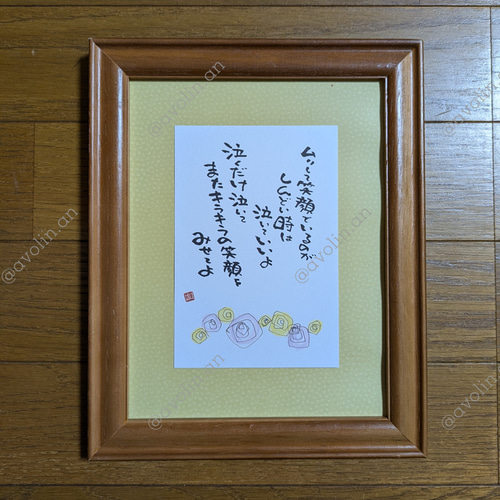 ムリして笑顔でいるのが
しんどい時は
泣いていいよ
泣くだけ泣いて
またキラキラの笑顔を
みせてよ
@avolin.an
@avolin.an
@avolin.an
@avolin.an
@avolin.an
@avolin.an
@avolin.an
@avolin.an